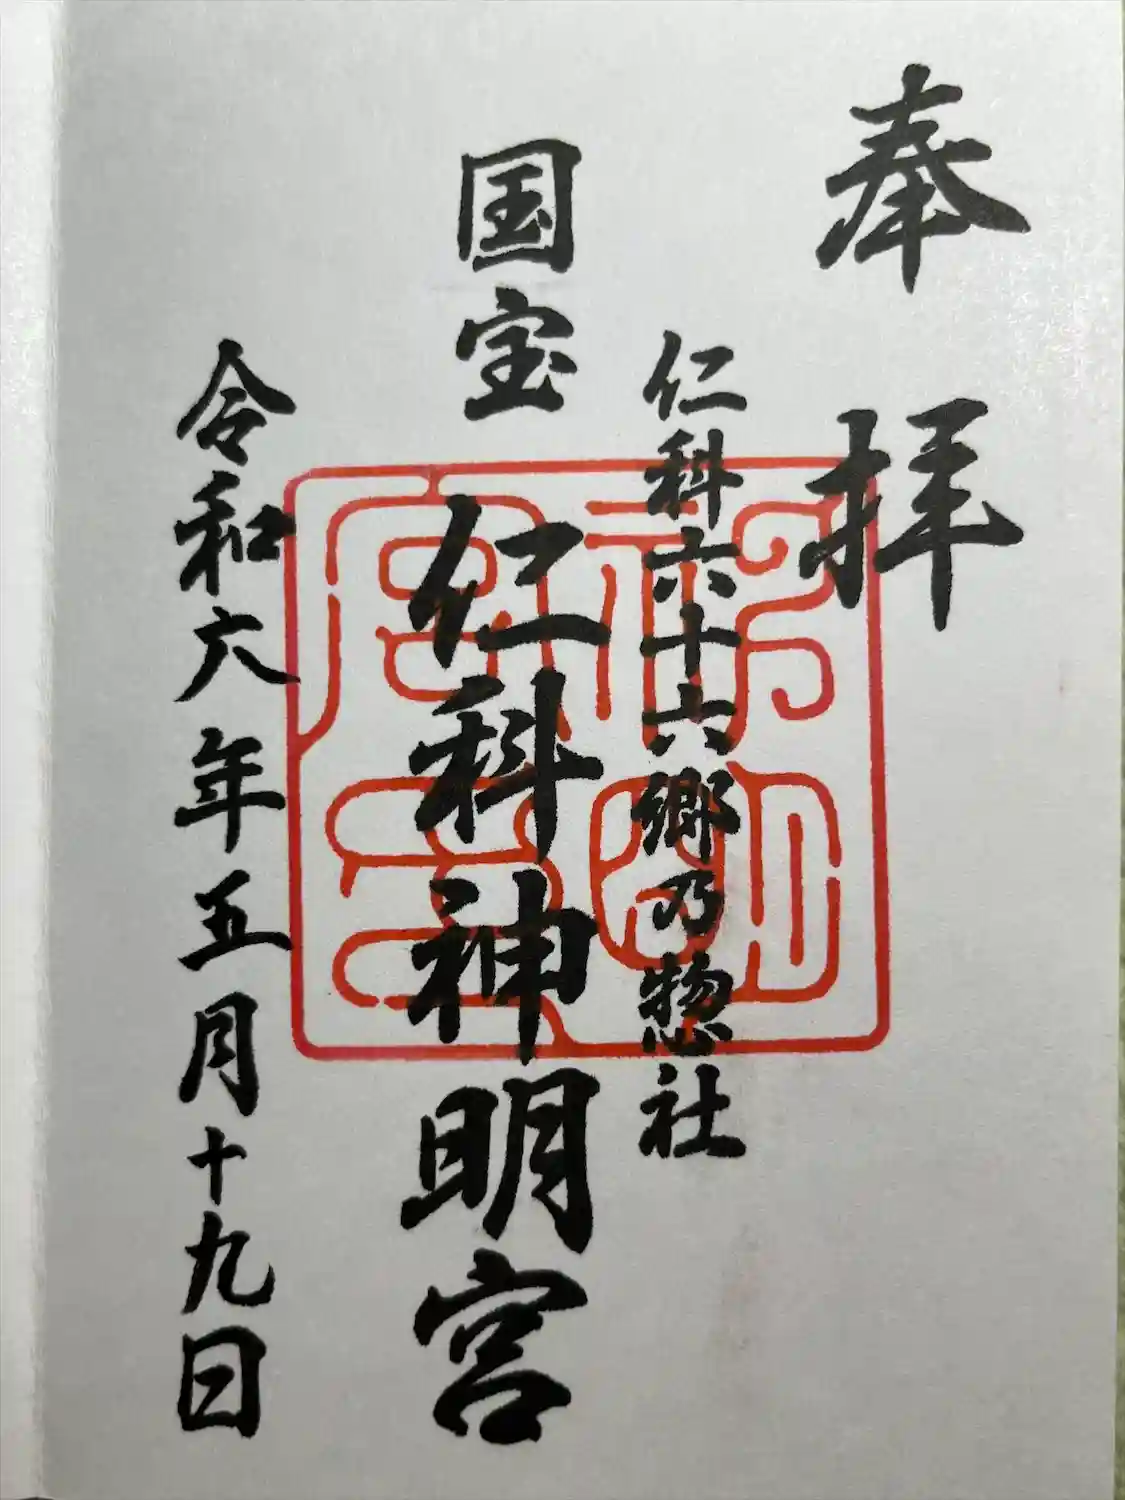 奉拝
仁科六十六郷乃惣社
国宝
仁科神明宮
令和六年五月十九日